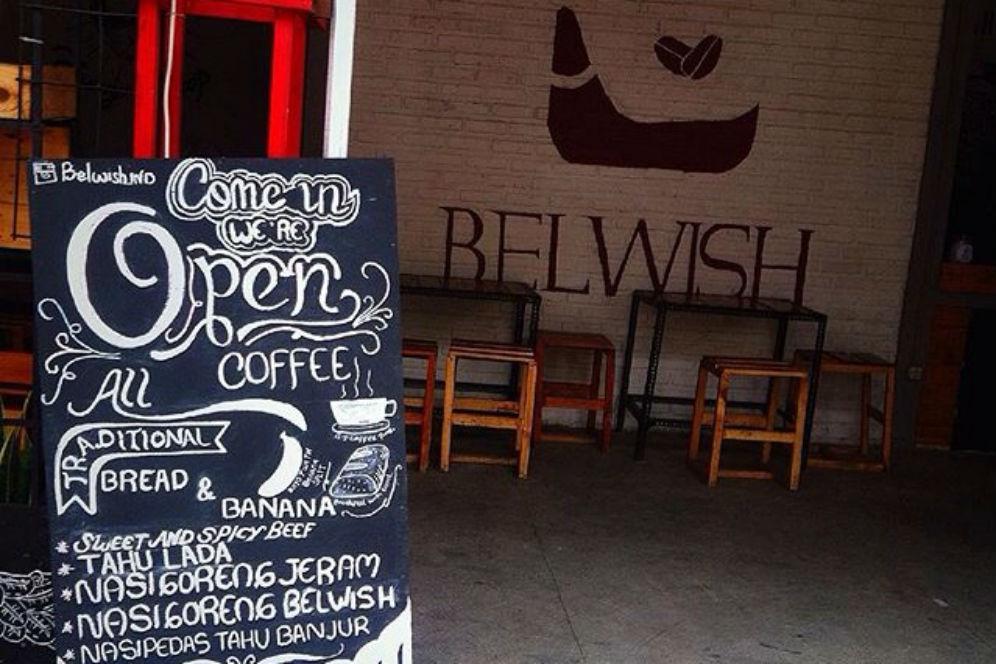 Belwish.IND
Come in
WE'RE
Open
COFFEE
All
TRADITIONAL
BREAD &
BANANA
* SWEET AND SPICY BEEF
* TAHU LADA
* NASI GORENG JERAM
* NASI GORENG BELWISH
* NASI PEDAS TAHU BANJUR
BELWISH